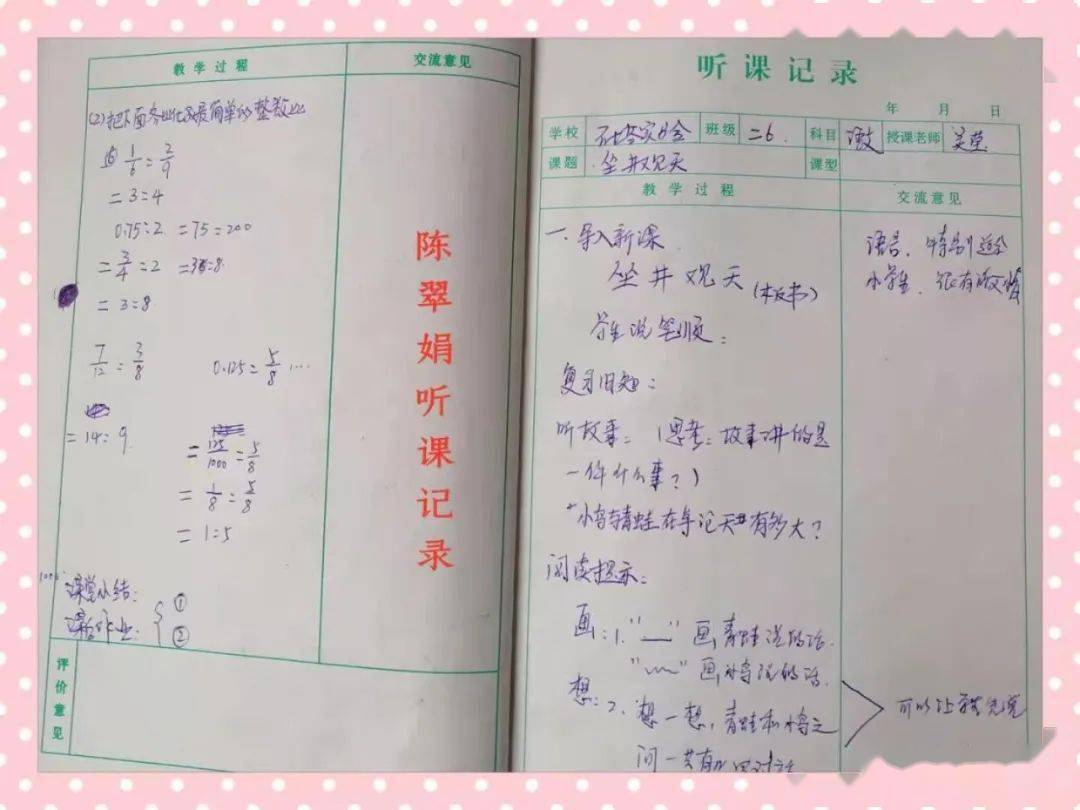 教学过程
交流意见
(2)把下面各比化成最简单的整数比
1/6:2/9
=3:4
0.75:2 =75:200
=3/4:2 =3:8
=3:8
7/12:3/8
0.125:5/8
=14:9
=125/1000:5/8
=1/8:5/8
=1:5
课堂小结:
课后作业: ① ②
评价意见
陈翠娟听课记录
听课记录
年 月 日
学校 班级 二6. 科目 语文 授课老师 吴莹
课题 坐井观天 课型
教学过程
交流意见
一、导入新课
坐井观天(板书)
学生说笔顺:
复习旧知:
听故事:(思考:故事讲的是
一件什么事?)
小鸟与青蛙在争论天有多大?
阅读提示:
画:1."——"画青蛙说的话.
"﹏﹏"画小鸟说的话.
想:2、想一想,青蛙和小鸟之
间一共有几次对话
语言,特别适合
小学生,很有激情
可以让学生先说